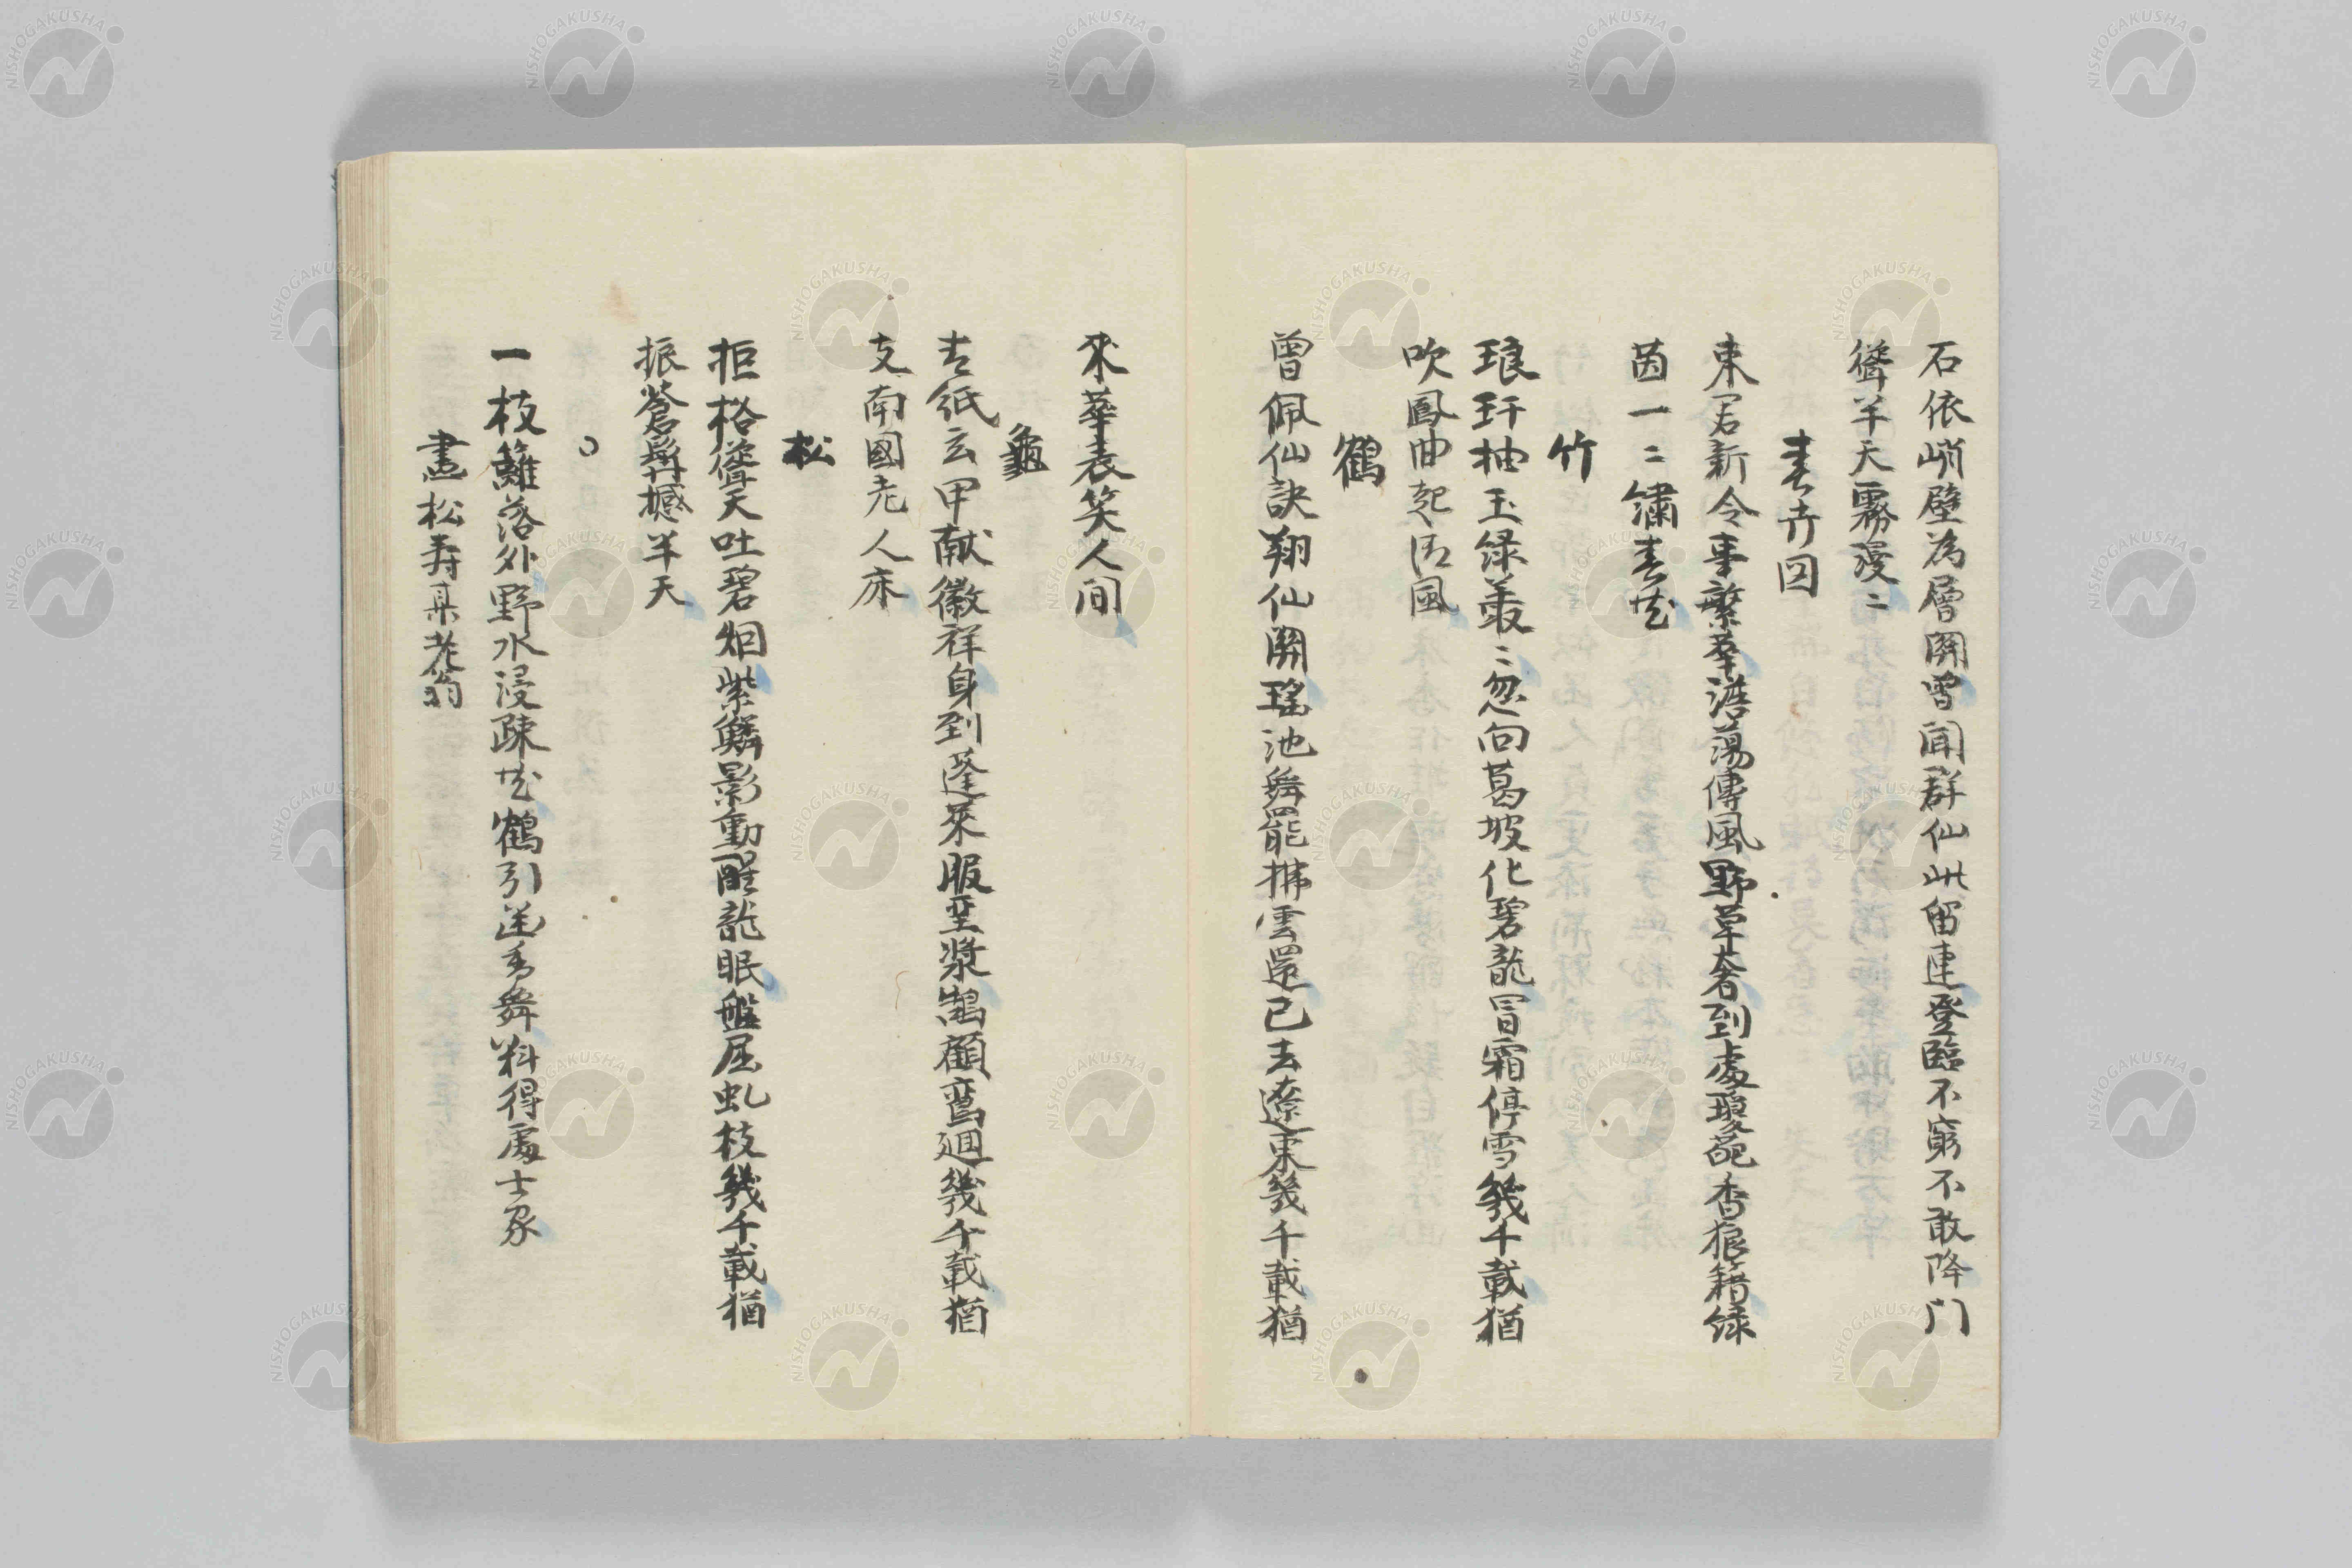 石依峭壁為層開曽聞群仙此留連登臨不窮不敢降门
聳半天霧漫〻
春卉図
東君新令事繁華澹蕩傳風野草奢到處瓊葩香狼籍緑
茵一〻繍春花
竹
琅玕抽玉緑叢〻忽向葛坡化碧龍冒霜停雪幾千載猶
吹鳳曲起清風
鶴
曽佩仙訣翔仙関瑤池舞罷拂雲還已去遼東幾千載猶
来華表笑人间
龜
玄甲献徴祥身到蓬萊服玉漿鵠顧鸞廻幾千載猶
支南國老人床
松
拒格聳天吐碧烟紫鱗影動醒龍眠盤屈虬枝幾千載猶
振蒼髯撼半天
一枝籬落外野水浸疎花鶴引送香舞料得處士家
畫松壽某老翁
NISHOGAKUSHA